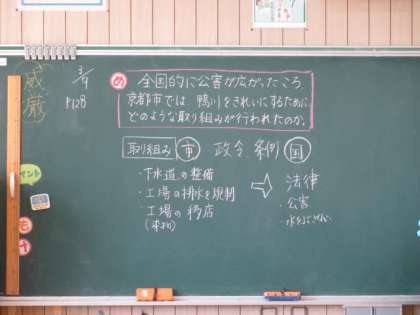 威厳
3/9
P128
め 全国的に公害が広がったころ
京都市では 鴨川をきれいにするために
どのような取り組みが行われたのか。
取り組み 市 政令 条例 国
・下水道の整備
・工場の排水を規制
・工場の移店
⇨ 法律
・公害
イント
も